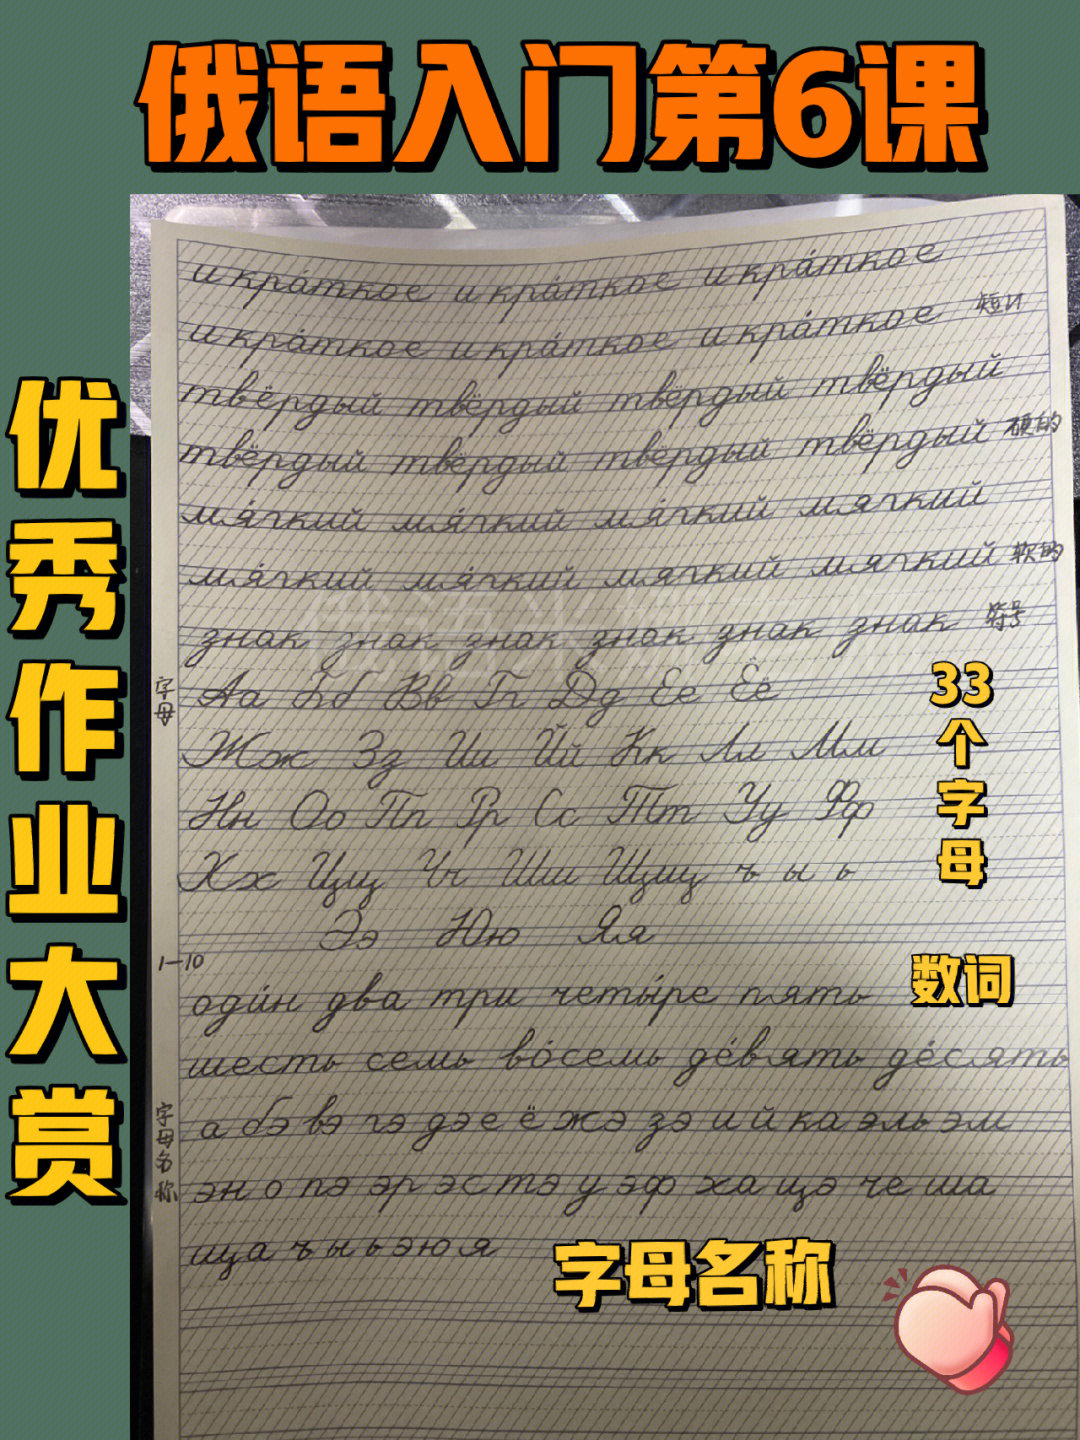 俄语入门第6课
优秀作业大赏
и кра́ткое и кра́ткое и кра́ткое
и кра́ткое и кра́ткое и кра́ткое 短и
твёрдый твёрдый твёрдый твёрдый
твёрдый твёрдый твёрдый твёрдый 硬的
мя́гкий мя́гкий мя́гкий мягкий
мя́гкий мя́гкий мягкий мягкий 软的
знак знак знак знак знак знак 符号
字母
Аа Бб Вв Гг Дд Ее Ёё
33个字母
Жж Зз Ии Йй Кк Лл Мм
Нн Оо Пп Рр Сс Тт Уу Фф
Хх Цц Чч Шш Щщ ъ ы ь
Ээ Юю Яя
1-10
оди́н два три четы́ре пять
数词
шесть семь во́семь де́вять де́сять
字母名称
а бэ вэ гэ дэ е ё жэ зэ и й ка эль эм
эн о пэ эр эс тэ у эф ха цэ че ша
ща ъ ы ь э ю я
字母名称